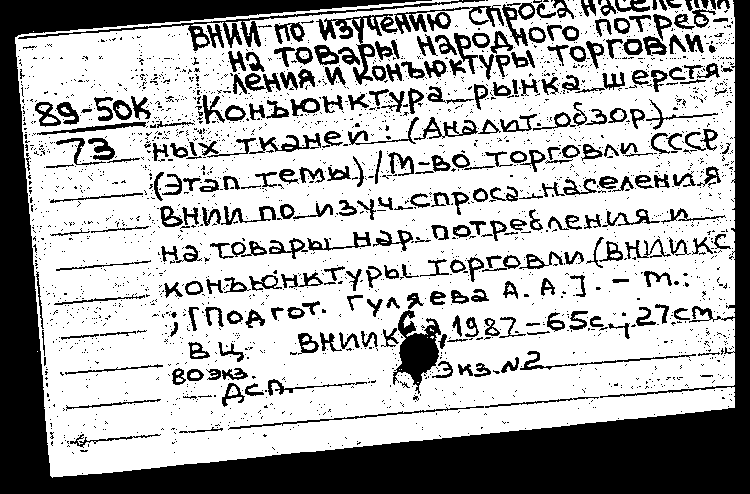 ВНИИ по изучению спроса населения
на товары народного потреб-
ления и конъюктуры торговли.
89-50к Конъюнктура рынка шерстя-
73 ных тканей: (Аналит. обзор).
(Этап темы) / М-во торговли СССР,
ВНИИ по изуч. спроса населения
на товары нар. потребления и
конъюнктуры торговли (ВНИИКС
; [Подгот. Гуляева А. А.]. - М.:
ВНИИКСа, 1987 - 65с.; 27см. -
В ц. Экз. №2
во экз.
ДСП.